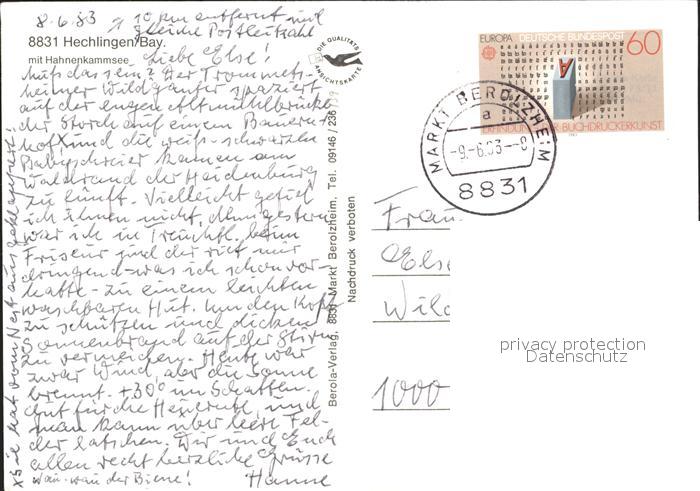 8.6.83 10 km entfernt und
gleiche Postleitzahl
8831 Hechlingen/Bay.
mit Hahnenkammsee
DIE QUALITÄTS ANSICHTSKARTE
Liebe Else!
Muß das sein? Der Trommets-
heimer Wildganter spaziert
auf der engen Altmühlbrücke
der Storch auf einem Bauern-
hof und die weiß-schwarzen
Babyschreier kamen am
Waldrand der Heidenburg
zu fünft. Vielleicht gefiel
ich ihnen nicht, denn gestern
war ich in Treuchtl. beim
Friseur und der riet mir
dringend - was ich schon vor-
hatte - zu einem leichten
waschbaren Hut. Um den Kopf
zu schützen und dicken
Sonnenbrand auf der Stirn
zu vermeiden. Heute war
zwar Wind, aber die Sonne
brennt. +30° im Schatten.
Gut für die Heuernte, und
man kann über leere Fel-
der latschen. Dir und Euch
allen recht herzliche Grüsse
wau-wau der Biene! Hanne
Berola-Verlag, 8831 Markt Berolzheim, Tel. 09146 / 236
Nachdruck verboten
EUROPA DEUTSCHE BUNDESPOST 60
A
ERFINDUNG DER BUCHDRUCKERKUNST
1983
MARKT BEROLZHEIM
a
-9.-6.83--8
8831
Frau
Else
Wild
1000
privacy protection
Datenschutz